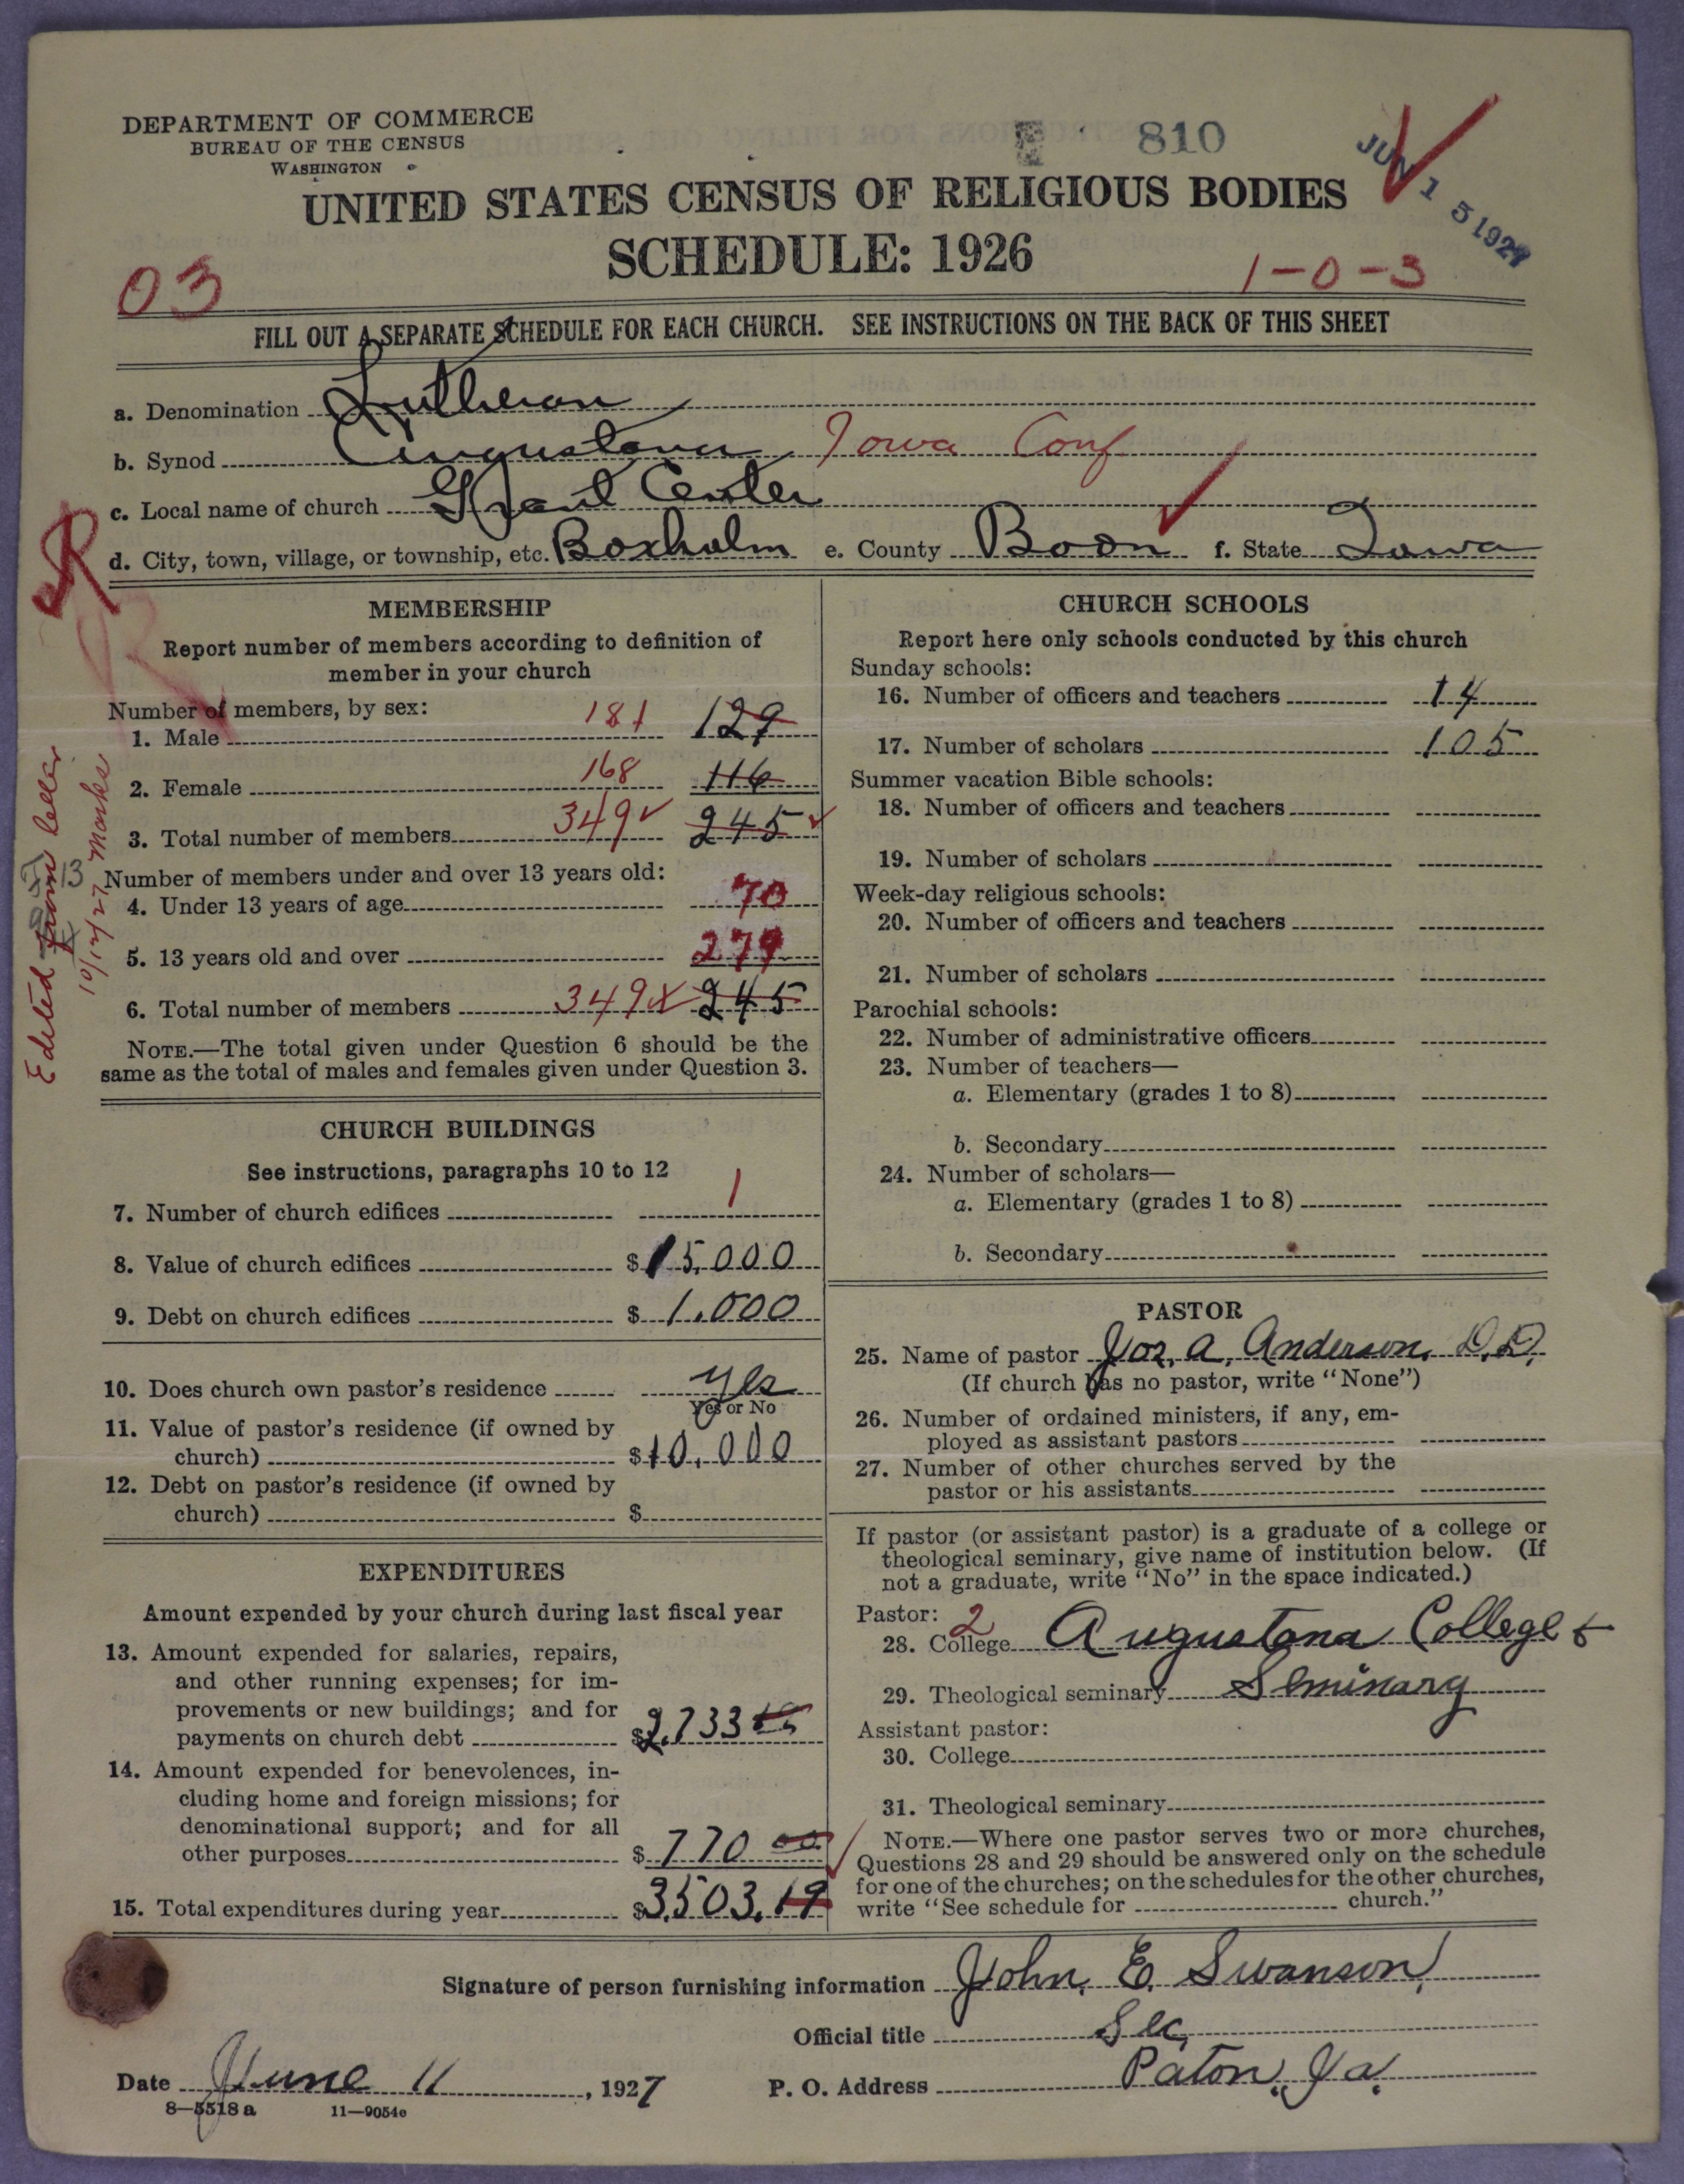 DEPARTMENT OF COMMERCE
BUREAU OF THE CENSUS
WASHINGTON
810
JUN 15 1927
UNITED STATES CENSUS OF RELIGIOUS BODIES
SCHEDULE: 1926
03
1-0-3
FILL OUT A SEPARATE SCHEDULE FOR EACH CHURCH. SEE INSTRUCTIONS ON THE BACK OF THIS SHEET
a. Denomination Lutheran
b. Synod Augustana Iowa Conf
c. Local name of church Grant Center
d. City, town, village, or township, etc. Boxholm e. County Boon f. State Iowa
R
Edited from letter
10/12/27 Marks
13
MEMBERSHIP
Report number of members according to definition of
member in your church
Number of members, by sex:
1. Male 181 129
2. Female 168 116
3. Total number of members 349 245
Number of members under and over 13 years old:
4. Under 13 years of age 70
5. 13 years old and over 279
6. Total number of members 349 245
NOTE.—The total given under Question 6 should be the
same as the total of males and females given under Question 3.
CHURCH BUILDINGS
See instructions, paragraphs 10 to 12
7. Number of church edifices 1
8. Value of church edifices $15,000
9. Debt on church edifices $1,000
10. Does church own pastor's residence yes
Yes or No
11. Value of pastor's residence (if owned by
church) $10,000
12. Debt on pastor's residence (if owned by
church) $
EXPENDITURES
Amount expended by your church during last fiscal year
13. Amount expended for salaries, repairs,
and other running expenses; for im-
provements or new buildings; and for
payments on church debt $2,733
14. Amount expended for benevolences, in-
cluding home and foreign missions; for
denominational support; and for all
other purposes $770 00
15. Total expenditures during year $3,503.19
CHURCH SCHOOLS
Report here only schools conducted by this church
Sunday schools:
16. Number of officers and teachers 14
17. Number of scholars 105
Summer vacation Bible schools:
18. Number of officers and teachers
19. Number of scholars
Week-day religious schools:
20. Number of officers and teachers
21. Number of scholars
Parochial schools:
22. Number of administrative officers
23. Number of teachers—
a. Elementary (grades 1 to 8)
b. Secondary
24. Number of scholars—
a. Elementary (grades 1 to 8)
b. Secondary
PASTOR
25. Name of pastor Jos. A. Anderson, D.D.
(If church has no pastor, write "None")
26. Number of ordained ministers, if any, em-
ployed as assistant pastors
27. Number of other churches served by the
pastor or his assistants
If pastor (or assistant pastor) is a graduate of a college or
theological seminary, give name of institution below. (If
not a graduate, write "No" in the space indicated.)
Pastor: 2
28. College Augustana College &
29. Theological seminary Seminary
Assistant pastor:
30. College
31. Theological seminary
NOTE.—Where one pastor serves two or more churches,
Questions 28 and 29 should be answered only on the schedule
for one of the churches; on the schedules for the other churches,
write "See schedule for church."
Signature of person furnishing information John E. Swanson
Official title Sec.
Date June 11, 1927 P. O. Address Paton, Ia.
8—5518 a 11—9054e